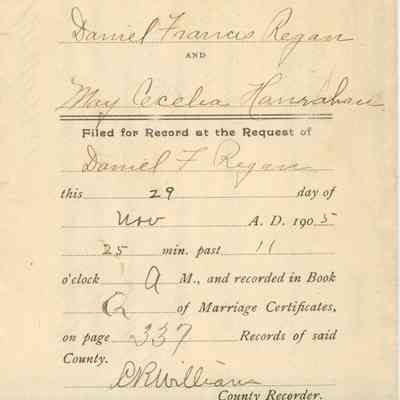 Daniel Francis Regan
AND
May Cecelia Hanrahan
Filed for Record at the Request of
Daniel F Regan
this 29 day of
Nov A. D. 1905
25 min. past 11
o'clock A M., and recorded in Book
G of Marriage Certificates,
on page 337 Records of said
County.
C R Williams
County Recorder.